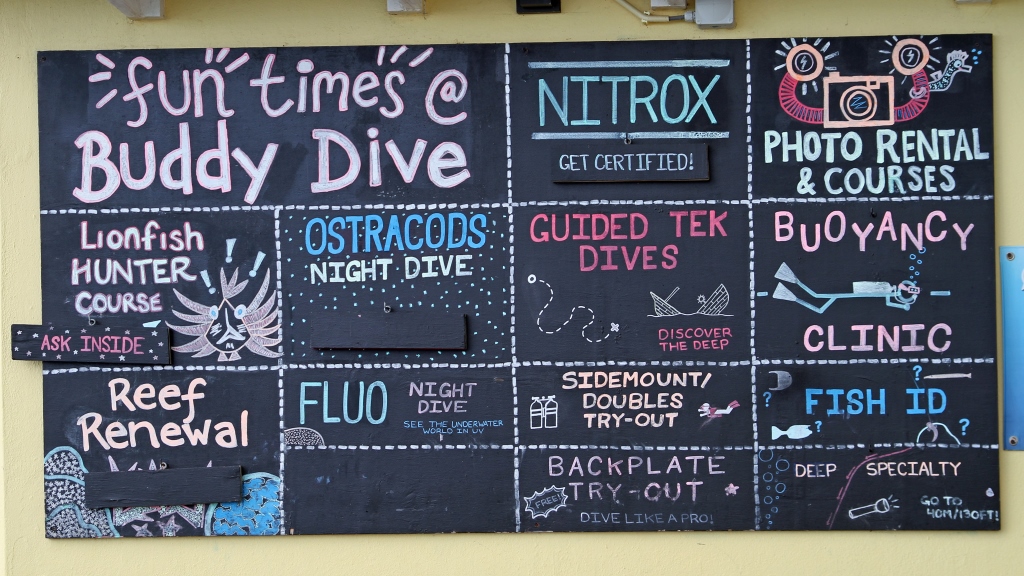 fun times @
Buddy Dive
NITROX
GET CERTIFIED!
PHOTO RENTAL
& COURSES
Lionfish
HUNTER
COURSE
ASK INSIDE
OSTRACODS
NIGHT DIVE
GUIDED TEK
DIVES
DISCOVER
THE DEEP
BUOYANCY
CLINIC
Reef
Renewal
FLUO
NIGHT
DIVE
SEE THE UNDERWATER
WORLD IN UV
SIDEMOUNT/
DOUBLES
TRY-OUT
FISH ID
? ? ? ?
BACKPLATE
TRY-OUT
FREE!
DIVE LIKE A PRO!
DEEP SPECIALTY
GO TO
40M/130FT!